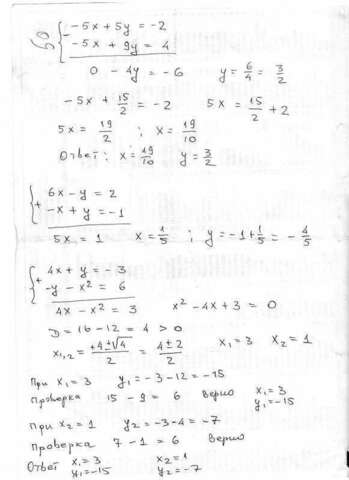 50 { - -5x + 5y = -2
-5x + 9y = 4
0 - 4y = -6 y = 6/4 = 3/2
-5x + 15/2 = -2 5x = 15/2 + 2
5x = 19/2 ; x = 19/10
Ответ: x = 19/10 y = 3/2
{ + 6x - y = 2
x + y = -1
5x = 1 x = 1/5 ; y = -1 + 1/5 = -4/5
{ + 4x + y = -3
-y - x² = 6
4x - x² = 3 x² - 4x + 3 = 0
D = 16 - 12 = 4 > 0
x₁,₂ = +4 ± √4 / 2 = 4 ± 2 / 2 x₁ = 3 x₂ = 1
При x₁ = 3 y₁ = -3 - 12 = -15
Проверка 15 - 9 = 6 верно x₁ = 3 y₁ = -15
при x₂ = 1 y₂ = -3 - 4 = -7
Проверка 7 - 1 = 6 верно
Ответ x₁ = 3 x₂ = 1
y₁ = -15 y₂ = -7